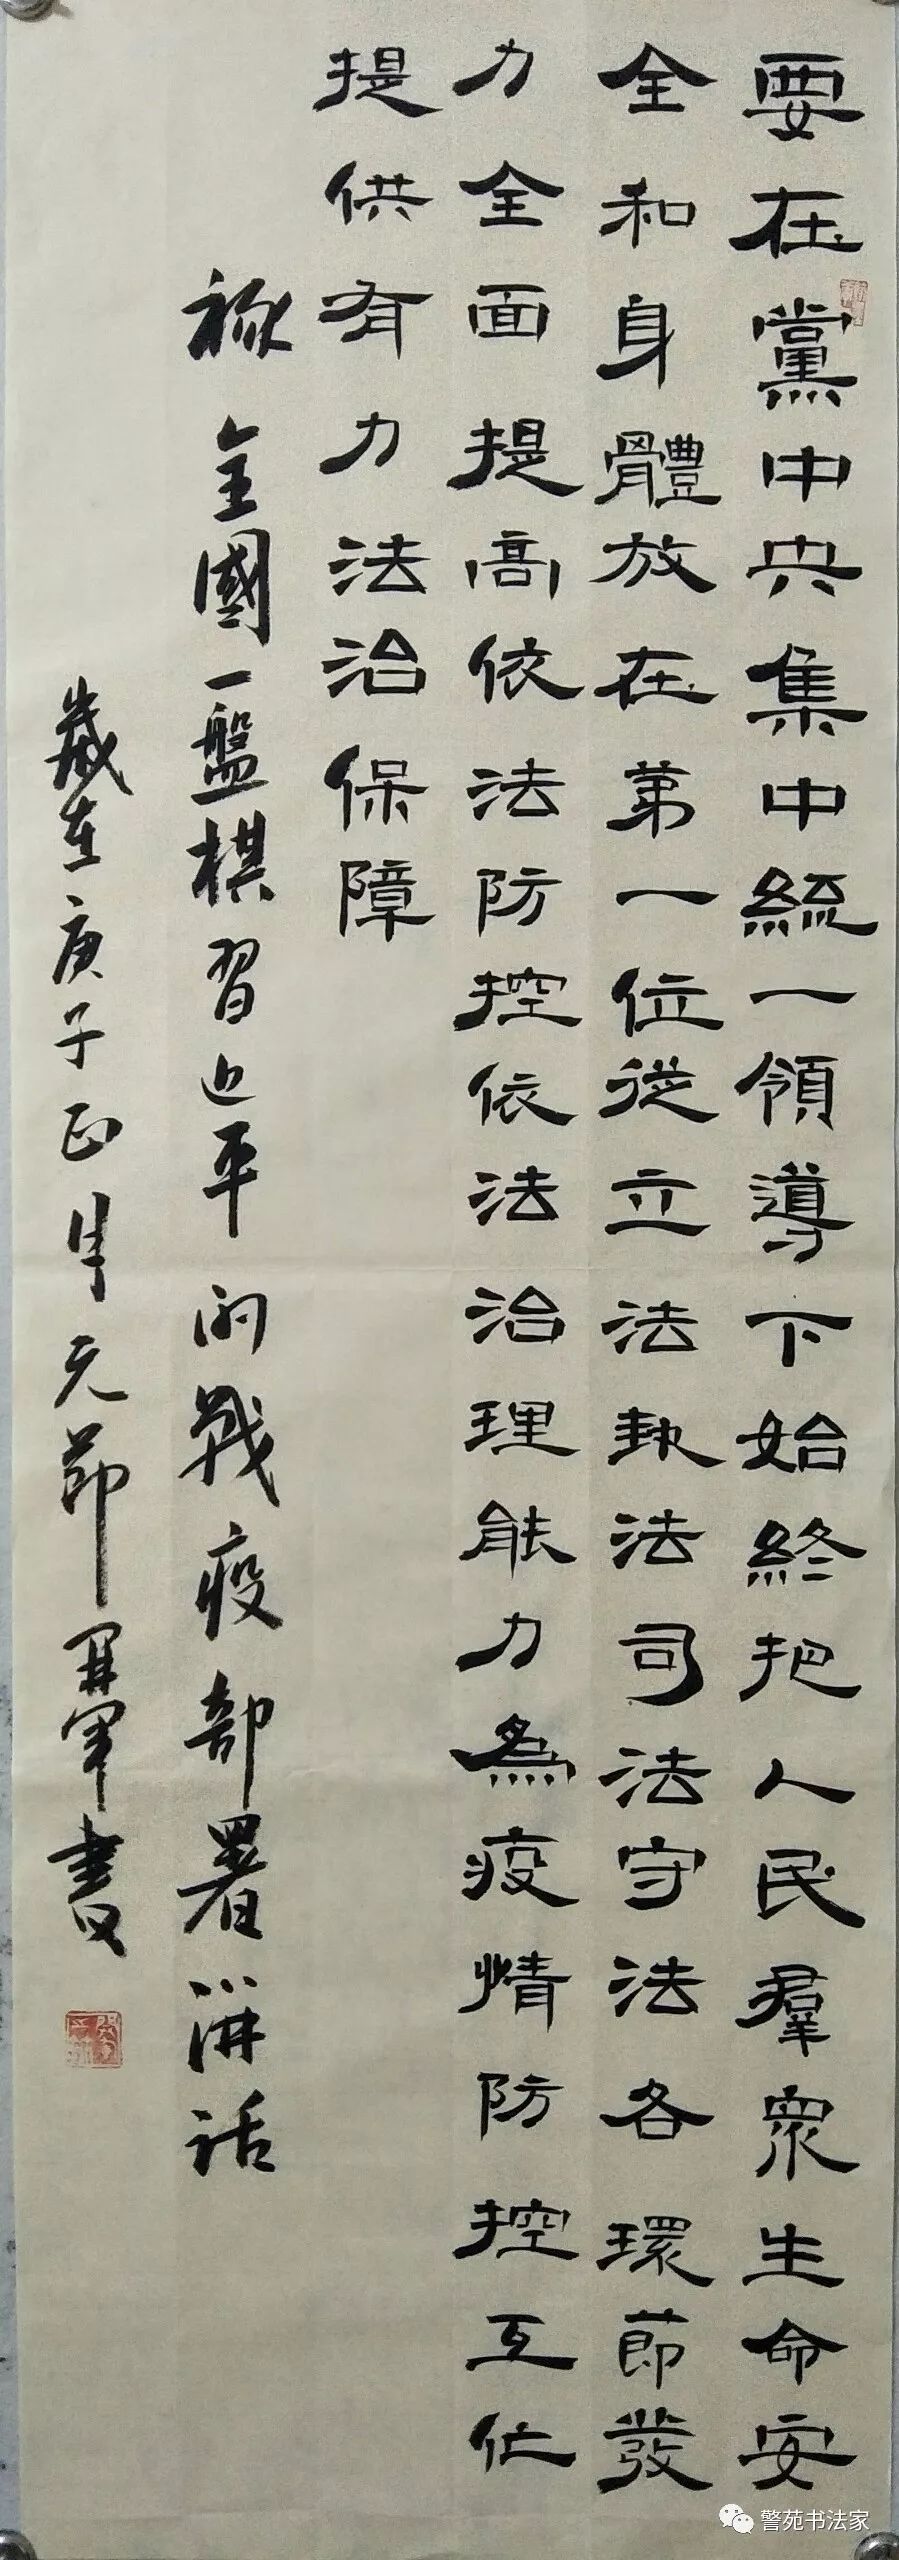 要在黨中央集中統一領導下始終把人民羣眾生命安
全和身體放在第一位從立法執法司法守法各環節發
力全面提高依法防控依法治理能力為疫情防控互忙
提供有力法治保障
全國一盤棋習近平的戰疫部署講話
歲在庚子正月元節軍書
警苑书法家